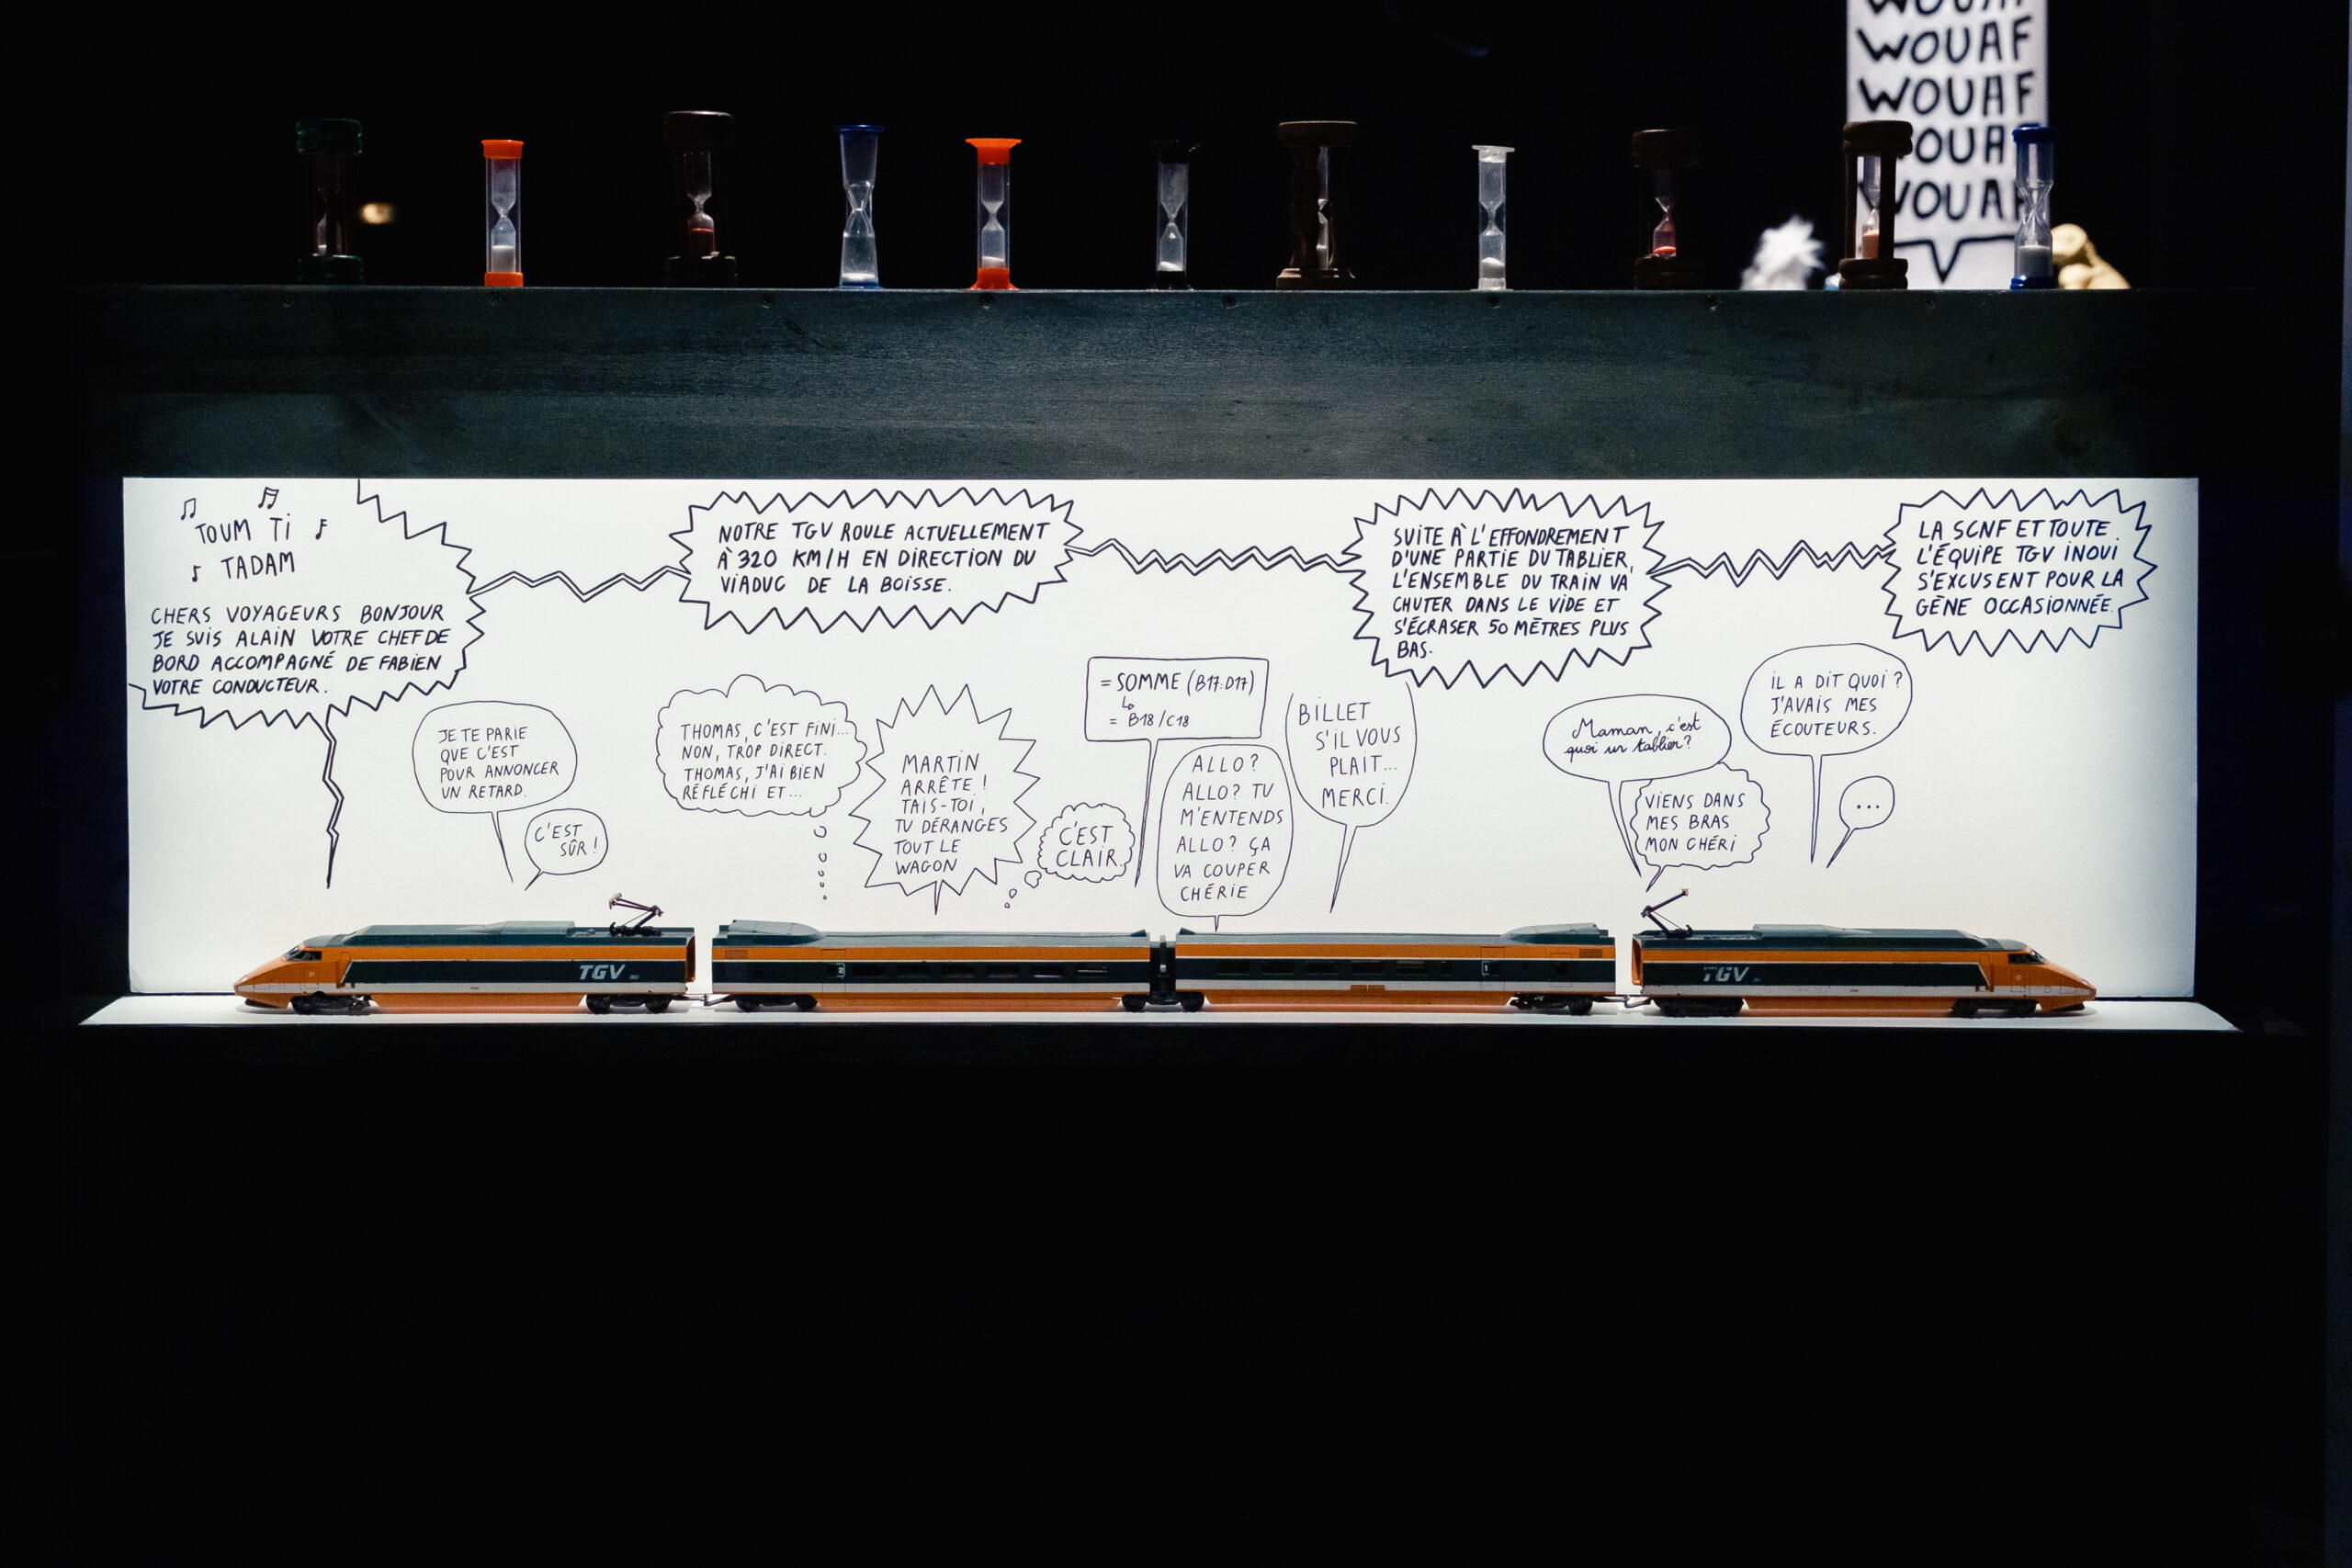 WOUAF
WOUAF
WOUAF
WOUAF
WOUAF
TOUM Ti
TADAM
CHERS VOYAGEURS BONJOUR
JE SUIS ALAIN VOTRE CHEF DE
BORD ACCOMPAGNÉ DE FABIEN
VOTRE CONDUCTEUR.
NOTRE TGV ROULE ACTUELLEMENT
À 320 KM/H EN DIRECTION DU
VIADUC DE LA BOISSE.
SUITE À L'EFFONDREMENT
D'UNE PARTIE DU TABLIER,
L'ENSEMBLE DU TRAIN VA
CHUTER DANS LE VIDE ET
S'ÉCRASER 50 MÈTRES PLUS
BAS.
LA SCNF ET TOUTE
L'ÉQUIPE TGV INOUI
S'EXCUSENT POUR LA
GÈNE OCCASIONNÉE.
JE TE PARIE
QUE C'EST
POUR ANNONCER
UN RETARD.
C'EST
SÛR !
THOMAS, C'EST FINI...
NON, TROP DIRECT.
THOMAS, J'AI BIEN
RÉFLÉCHI ET...
MARTIN
ARRÊTE !
TAIS-TOI,
TU DÉRANGES
TOUT LE
WAGON
C'EST
CLAIR.
= SOMME (B17:D17)
= B18/C18
ALLO ?
ALLO ? TU
M'ENTENDS
ALLO ? ÇA
VA COUPER
CHÉRIE
BILLET
S'IL VOUS
PLAIT...
MERCI.
Maman, c'est
quoi un tablier ?
VIENS DANS
MES BRAS
MON CHÉRI
IL A DIT QUOI ?
J'AVAIS MES
ÉCOUTEURS.
...
TGV
2
1
TGV